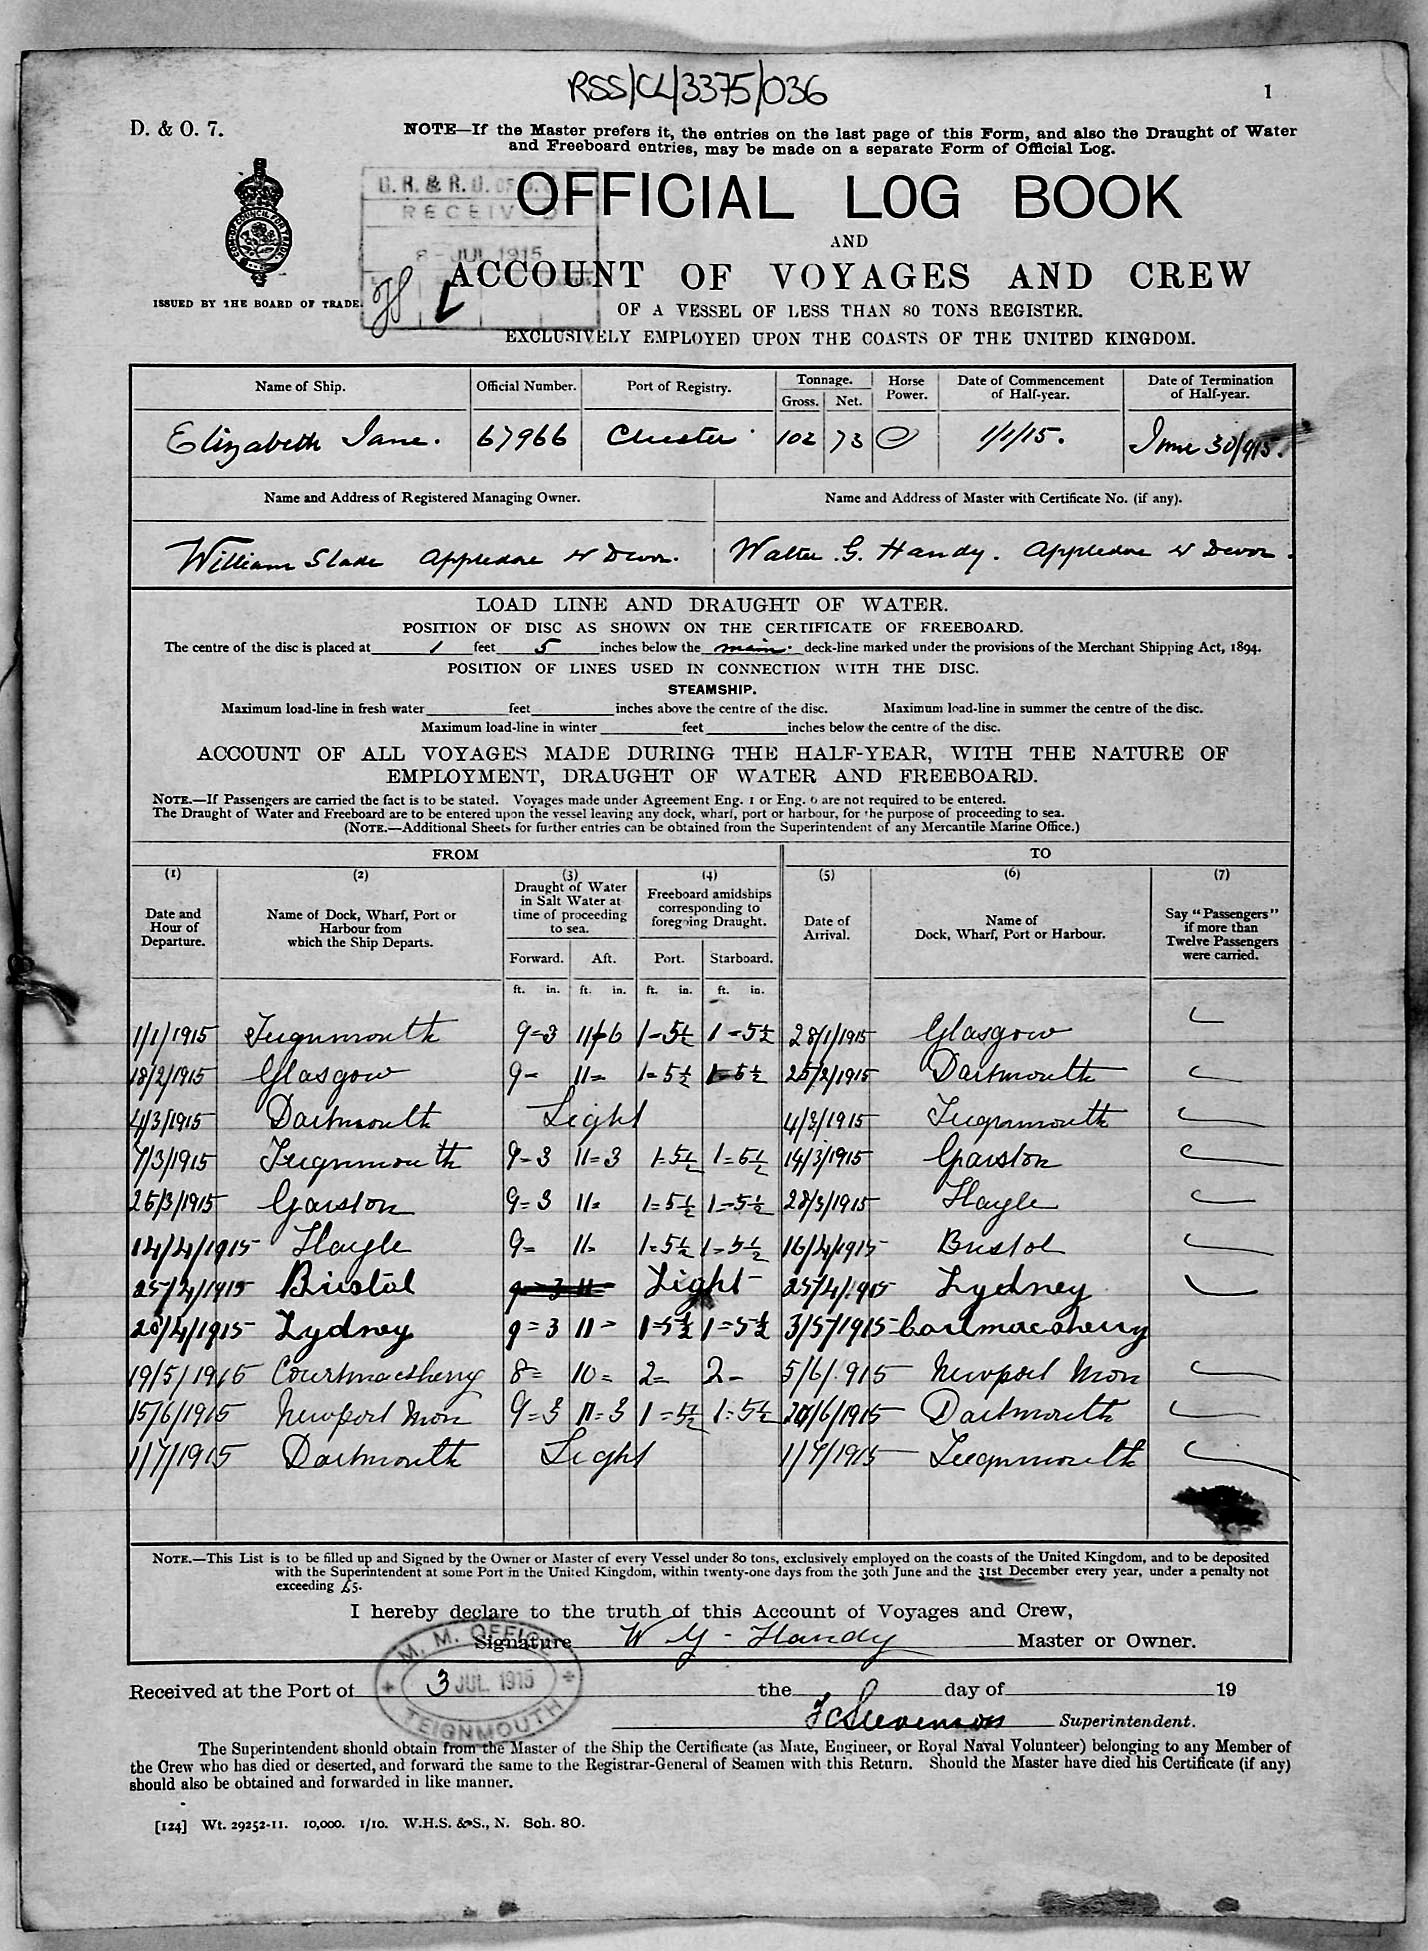 RSS/CL/3375/036
1
D. & O. 7.
NOTE—If the Master prefers it, the entries on the last page of this Form, and also the Draught of Water
and Freeboard entries, may be made on a separate Form of Official Log.
RECEIVED
8 - JUL 1915
OFFICIAL LOG BOOK
AND
ACCOUNT OF VOYAGES AND CREW
ISSUED BY THE BOARD OF TRADE.
OF A VESSEL OF LESS THAN 80 TONS REGISTER.
EXCLUSIVELY EMPLOYED UPON THE COASTS OF THE UNITED KINGDOM.
Name of Ship. Official Number. Port of Registry. Tonnage. Gross. Net. Horse Power. Date of Commencement of Half-year. Date of Termination of Half-year.
Elizabeth Jane. 67966 Chester 102 73 1/1/15. June 30/915.
Name and Address of Registered Managing Owner. Name and Address of Master with Certificate No. (if any).
William Slade Appledore N Devon. Walter G. Handy. Appledore N Devon.
LOAD LINE AND DRAUGHT OF WATER.
POSITION OF DISC AS SHOWN ON THE CERTIFICATE OF FREEBOARD.
The centre of the disc is placed at 1 feet 5 inches below the main deck-line marked under the provisions of the Merchant Shipping Act, 1894.
POSITION OF LINES USED IN CONNECTION WITH THE DISC.
STEAMSHIP.
Maximum load-line in fresh water feet inches above the centre of the disc. Maximum load-line in summer the centre of the disc.
Maximum load-line in winter feet inches below the centre of the disc.
ACCOUNT OF ALL VOYAGES MADE DURING THE HALF-YEAR, WITH THE NATURE OF
EMPLOYMENT, DRAUGHT OF WATER AND FREEBOARD.
NOTE.—If Passengers are carried the fact is to be stated. Voyages made under Agreement Eng. 1 or Eng. 6 are not required to be entered.
The Draught of Water and Freeboard are to be entered upon the vessel leaving any dock, wharf, port or harbour, for the purpose of proceeding to sea.
(NOTE.—Additional Sheets for further entries can be obtained from the Superintendent of any Mercantile Marine Office.)
FROM TO
(1) (2) (3) (4) (5) (6) (7)
Date and Hour of Departure. Name of Dock, Wharf, Port or Harbour from which the Ship Departs. Draught of Water in Salt Water at time of proceeding to sea. Freeboard amidships corresponding to foregoing Draught. Date of Arrival. Name of Dock, Wharf, Port or Harbour. Say "Passengers" if more than Twelve Passengers were carried.
Forward. Aft. Port. Starboard.
ft. in. ft. in. ft. in. ft. in.
1/1/1915 Teignmouth 9-3 11-6 1-5½ 1-5½ 28/1/1915 Glasgow
18/2/1915 Glasgow 9- 11- 1-5½ 1-5½ 25/2/1915 Dartmouth
4/3/1915 Dartmouth Light 4/3/1915 Teignmouth
7/3/1915 Teignmouth 9-3 11-3 1-5½ 1-5½ 14/3/1915 Garston
25/3/1915 Garston 9-3 11- 1-5½ 1-5½ 28/3/1915 Hayle
14/4/1915 Hayle 9- 11- 1-5½ 1-5½ 16/4/1915 Bristol
25/4/1915 Bristol Light 25/4/1915 Lydney
/4/1915 Lydney 9-3 11- 1-5½ 1-5½ 3/5/1915 Cortmacsherry
19/5/1915 Courtmacsherry 8- 10- 2- 2- 5/6/915 Newport Mon
15/6/1915 Newport Mon 9-3 11-3 1-5½ 1-5½ /6/1915 Dartmouth
1/7/1915 Dartmouth Light 1/7/1915 Teignmouth
NOTE.—This List is to be filled up and Signed by the Owner or Master of every Vessel under 80 tons, exclusively employed on the coasts of the United Kingdom, and to be deposited
with the Superintendent at some Port in the United Kingdom, within twenty-one days from the 30th June and the 31st December every year, under a penalty not
exceeding £5.
I hereby declare to the truth of this Account of Voyages and Crew,
Signature W G - Handy Master or Owner.
M. M. OFFICE
3 JUL. 1915
TEIGNMOUTH
Received at the Port of the day of 19
Stevenson Superintendent.
The Superintendent should obtain from the Master of the Ship the Certificate (as Mate, Engineer, or Royal Naval Volunteer) belonging to any Member of
the Crew who has died or deserted, and forward the same to the Registrar-General of Seamen with this Return. Should the Master have died his Certificate (if any)
should also be obtained and forwarded in like manner.
[124] Wt. 29252-11. 10,000. 1/10. W.H.S. & S., N. Sch. 80.